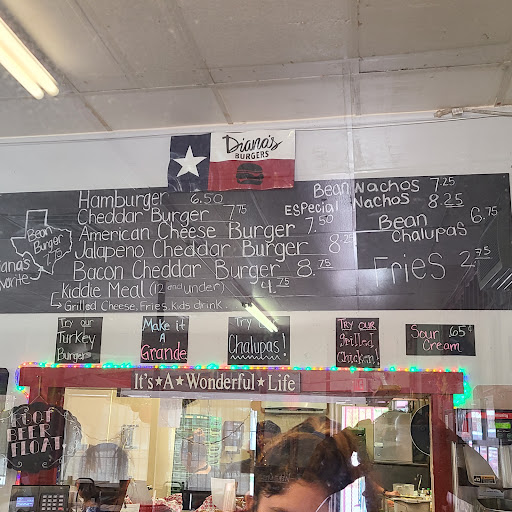 Diana's
BURGERS
Hamburger 6.50
Cheddar Burger 7.75
American Cheese Burger 7.50
Jalapeno Cheddar Burger 8.25
Bacon Cheddar Burger 8.75
Kiddie Meal (12 and under) 4.75
Grilled Cheese, Fries, Kids drink
Bean Nachos 7.25
ESPECIAL Nachos 8.25
Bean Chalupas 6.75
Fries 2.75
Bean
Burger
7.75
Try our
Turkey
Burgers
Make it
A
Grande
Try
Chalupas!
Try our
grilled
Chicken!
Sour 65¢
Cream
It's★A★Wonderful★Life
ROOT
BEER
FLOAT